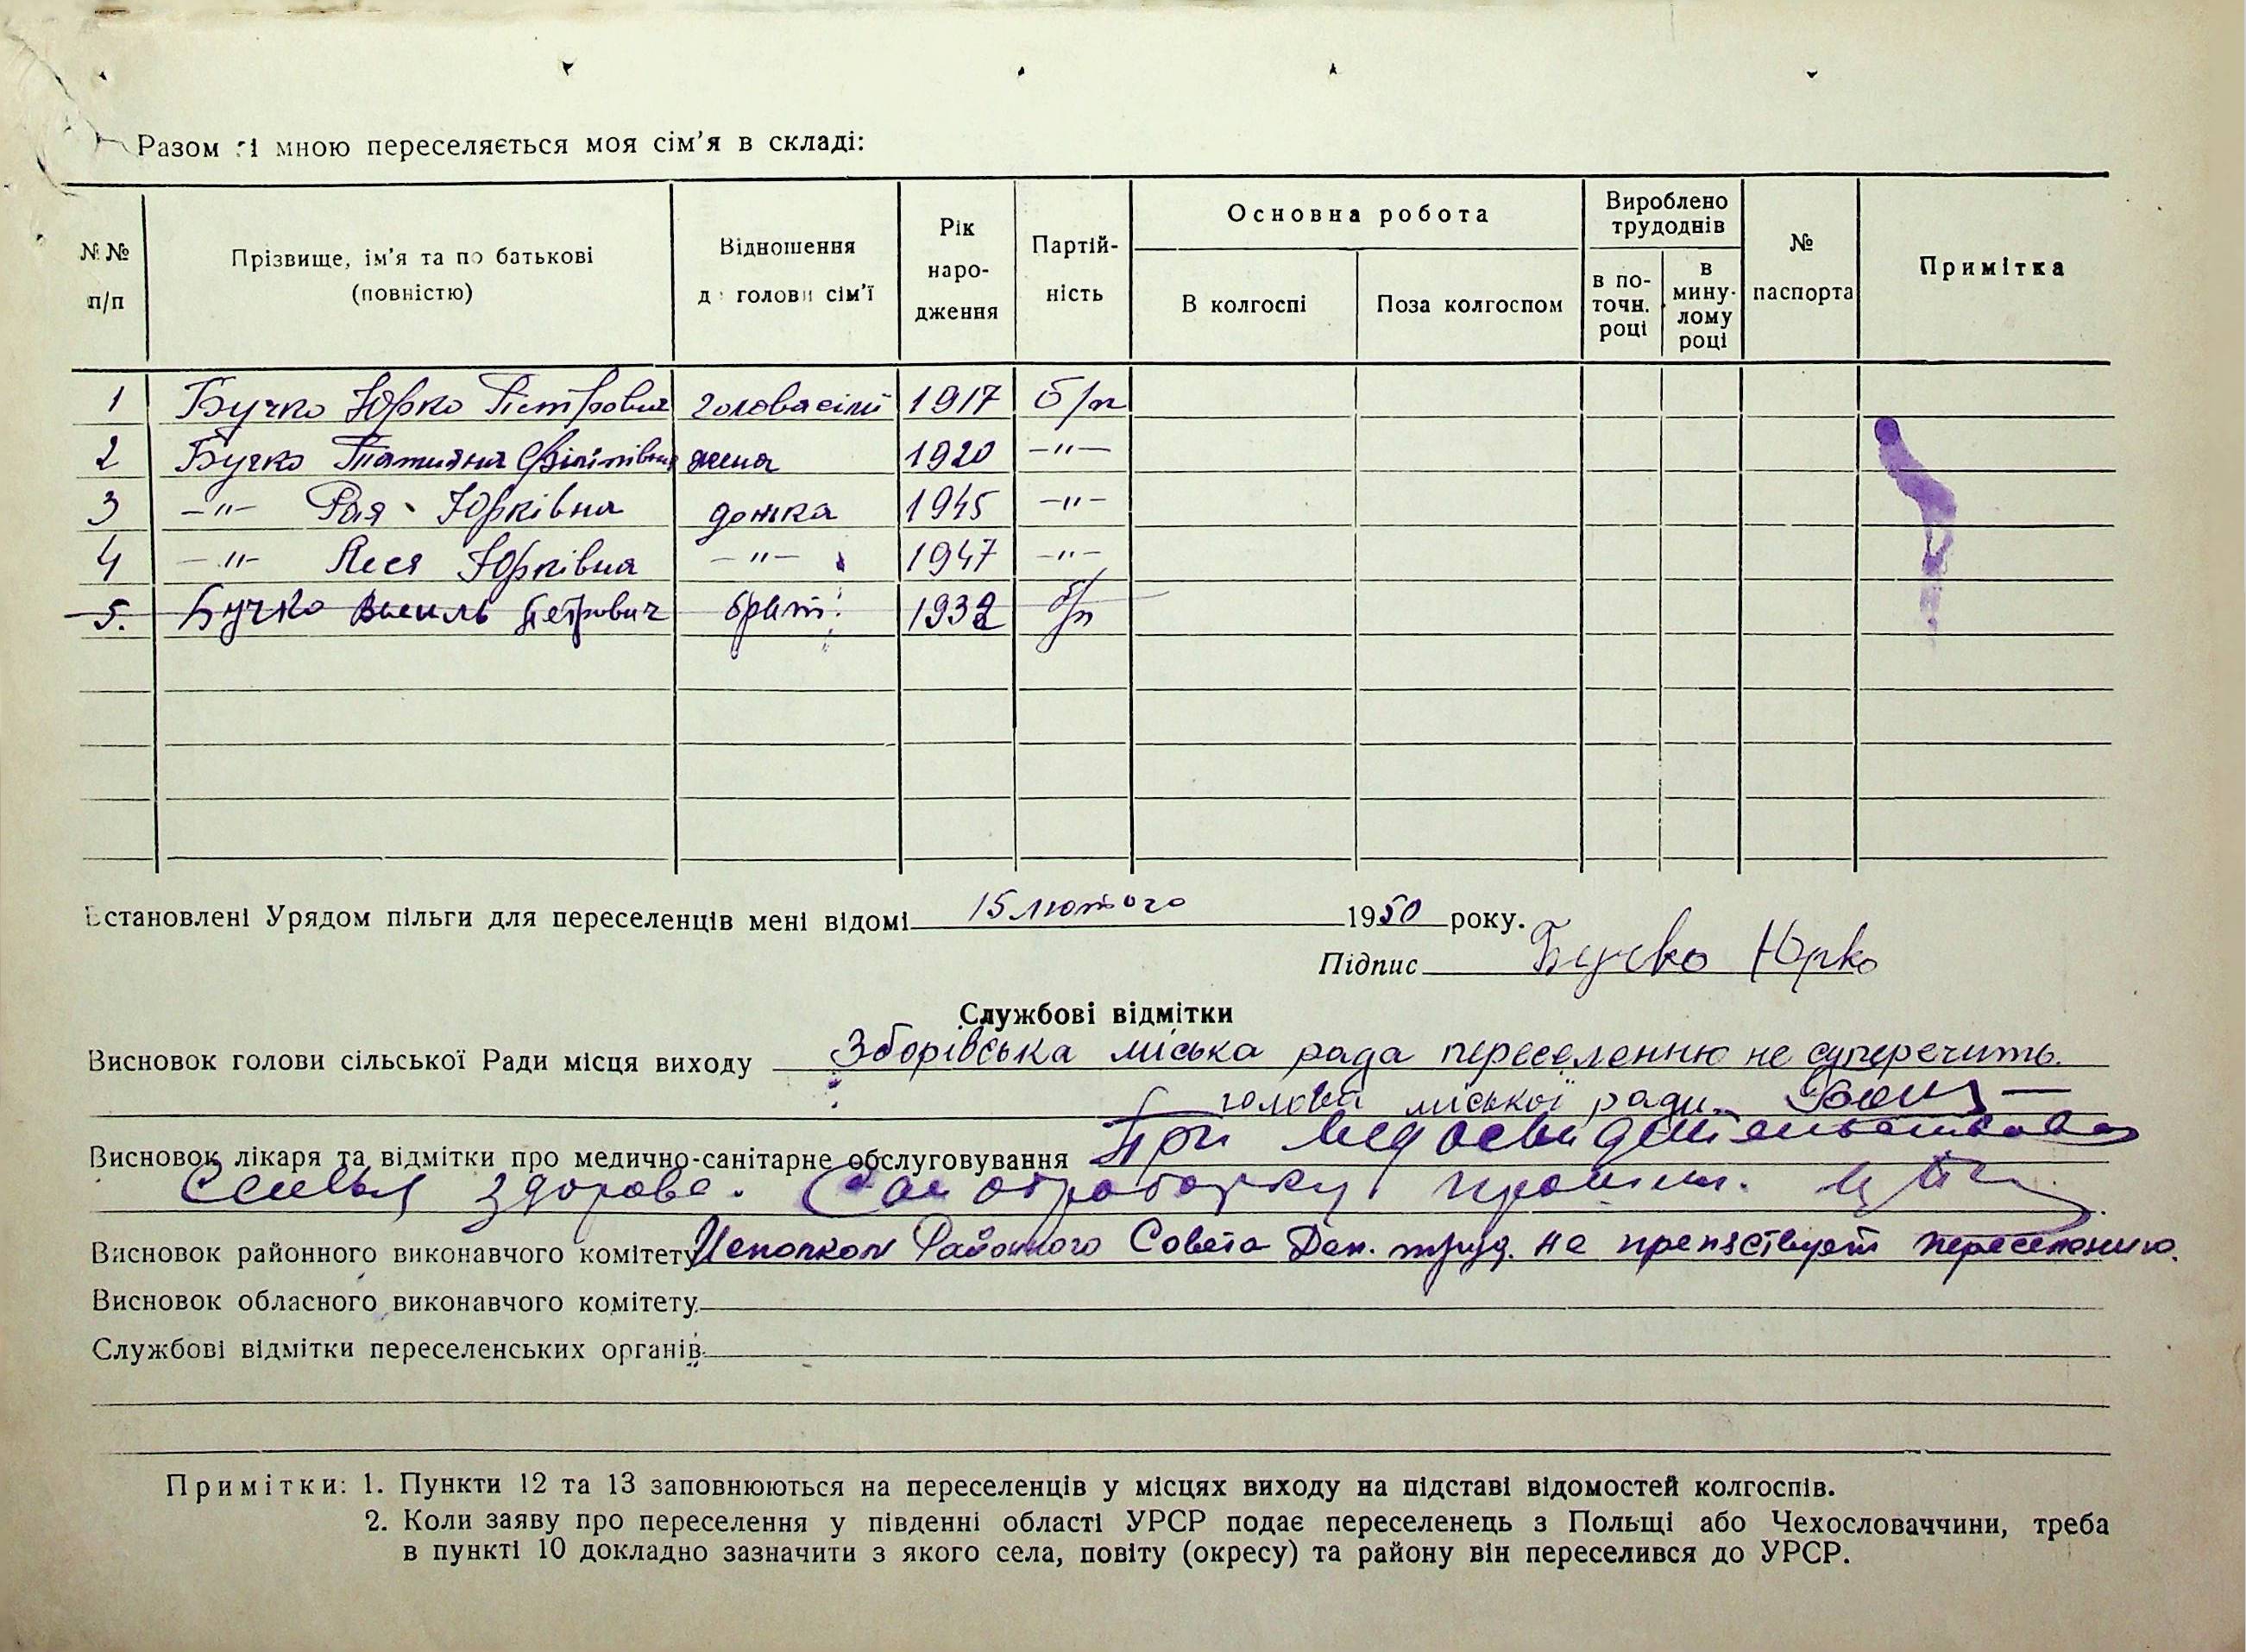 Разом зі мною переселяється моя сім'я в складі:
№№ п/п
Прізвище, ім'я та по батькові (повністю)
Відношення до голови сім'ї
Рік народження
Партійність
Основна робота
В колгоспі
Поза колгоспом
Вироблено трудоднів
в поточн. році
в минулому році
№ паспорта
Примітка
1 Бучко Юрко Петрович голова сімї 1917 б/п
2 Бучко Татияна Філіпівна жена 1920 —"—
3 —"— Рая Юрківна дочка 1945 —"—
4 —"— Леся Юрківна —"— 1947 —"—
5. Бучко Василь Петрович брат 1932 б/п
Встановлені Урядом пільги для переселенців мені відомі 15 лютого 1950 року.
Підпис Бучко Юрко
Службові відмітки
Висновок голови сільської Ради місця виходу Зборівська міська рада переселенню не суперечить.
голова міської ради
Висновок лікаря та відмітки про медично-санітарне обслуговування При
семья здорова. Сан обработку прошли.
Висновок районного виконавчого комітету Исполком Районного Совета Деп. труд. не препятствует переселению.
Висновок обласного виконавчого комітету
Службові відмітки переселенських органів
Примітки: 1. Пункти 12 та 13 заповнюються на переселенців у місцях виходу на підставі відомостей колгоспів.
2. Коли заяву про переселення у південні області УРСР подає переселенець з Польщі або Чехословаччини, треба
в пункті 10 докладно зазначити з якого села, повіту (окресу) та району він переселився до УРСР.